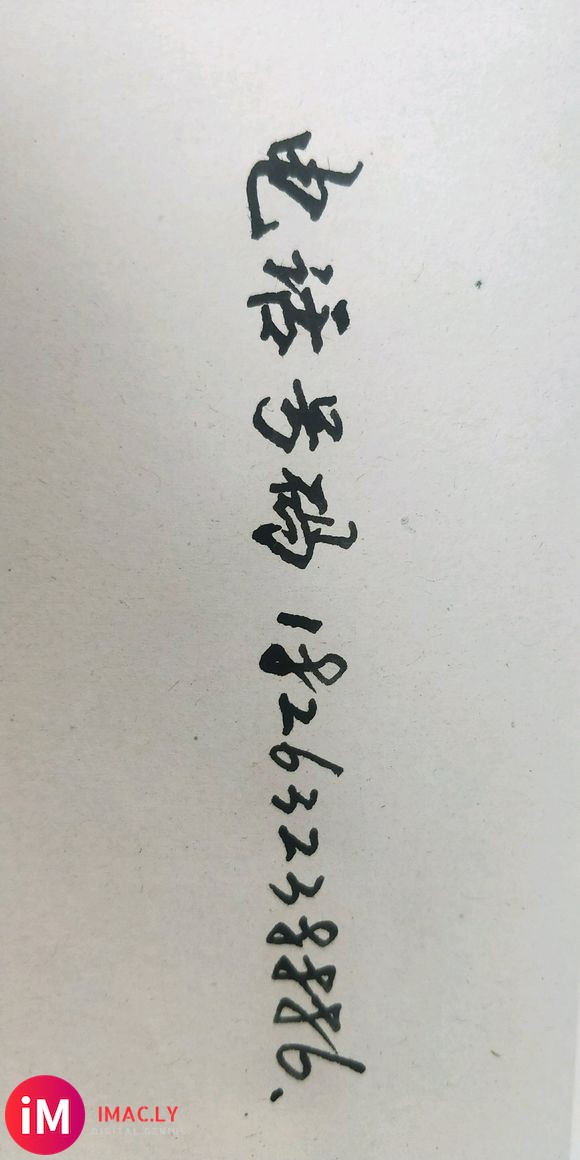 电话号码 18263238886.
iM IMAC.LY